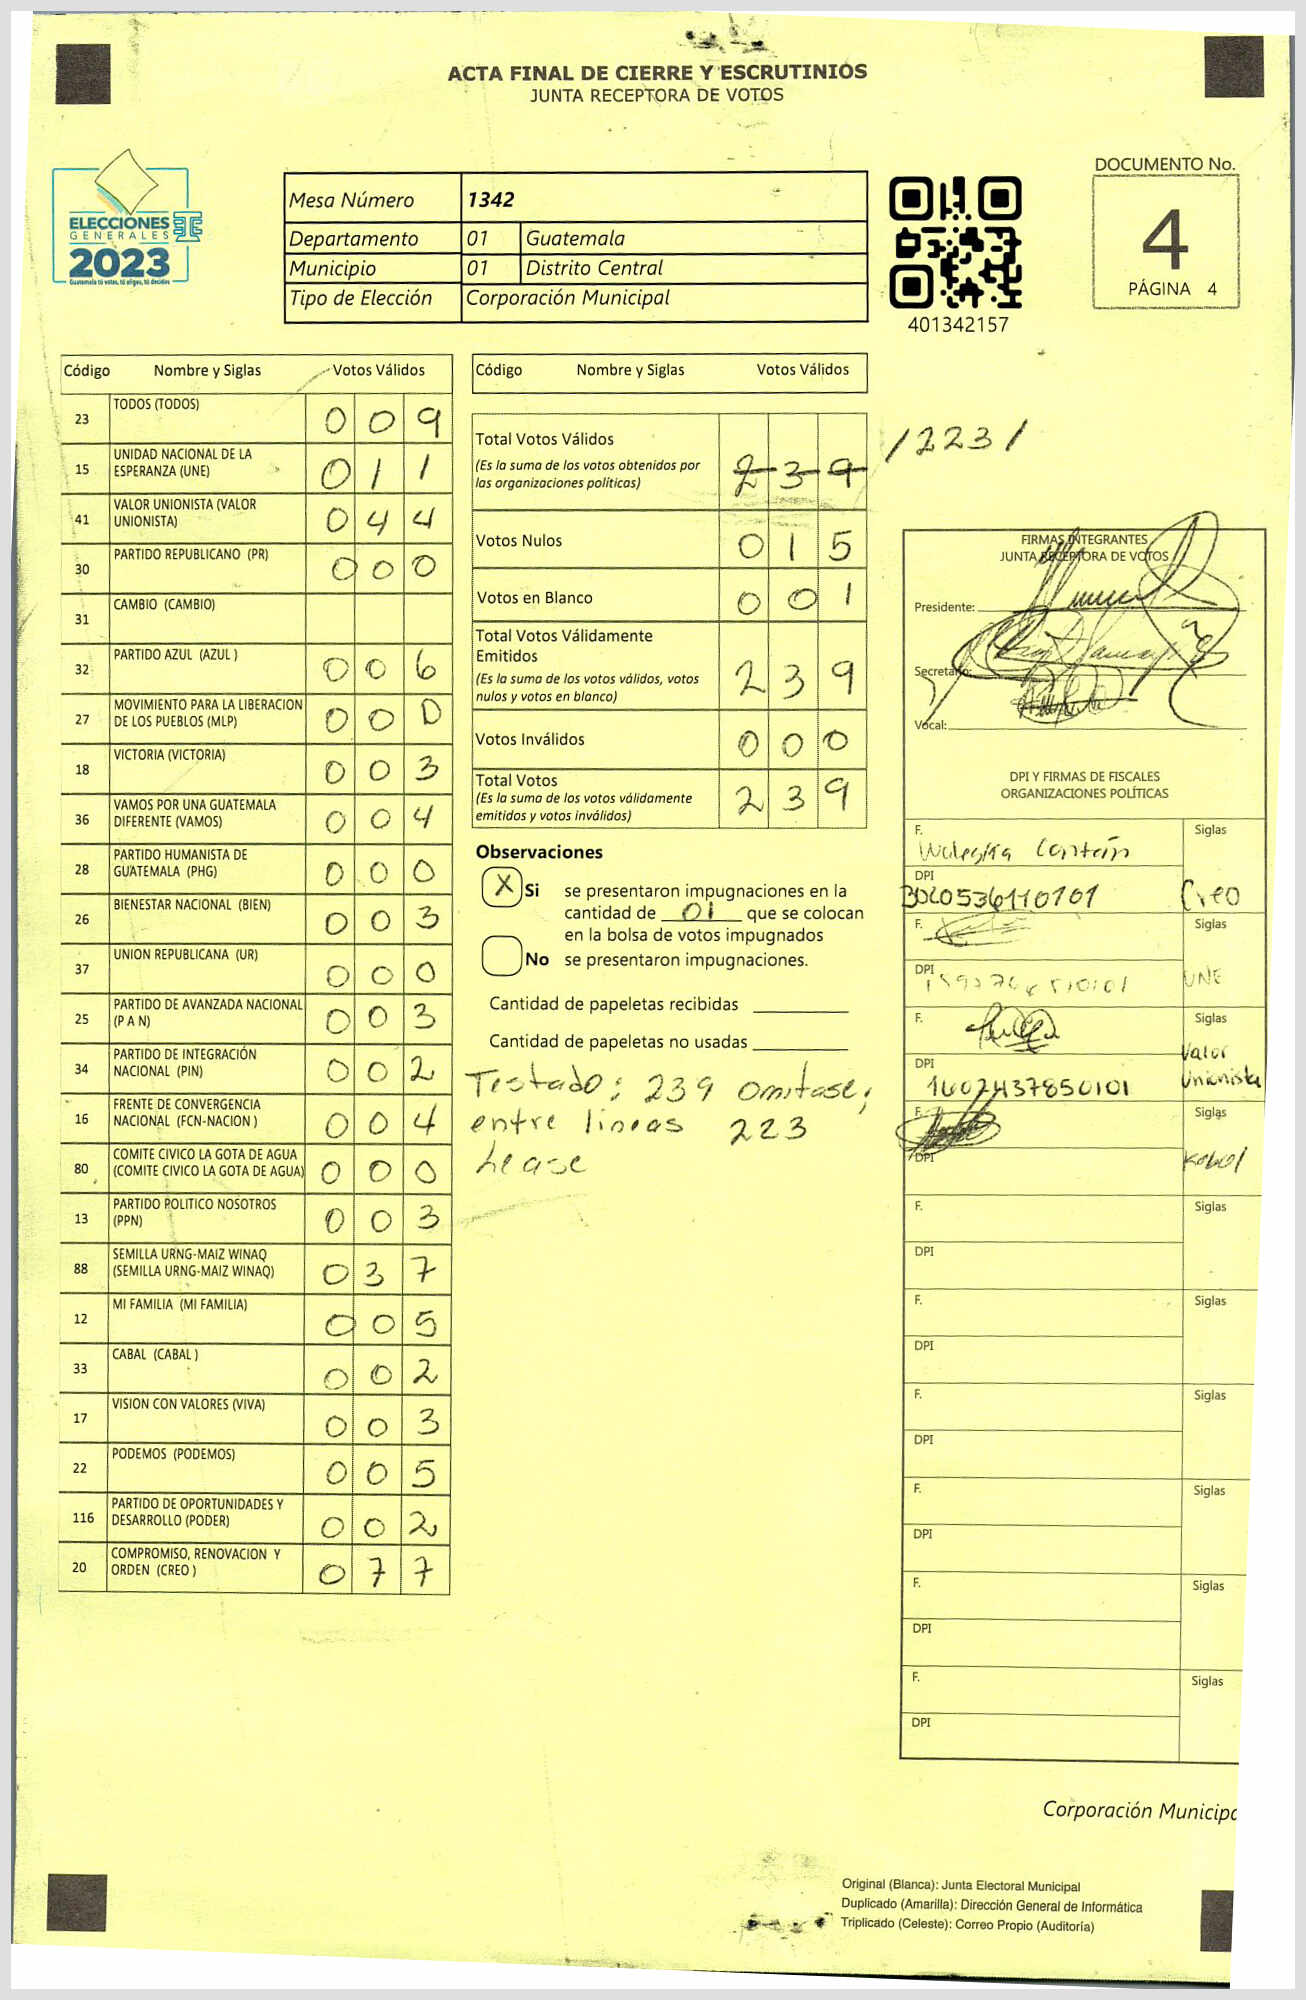 ACTA FINAL DE CIERRE Y ESCRUTINIOS
JUNTA RECEPTORA DE VOTOS
ELECCIONES
GENERALES
2023
Guatemala tú votas, tú eliges, tú decides
Mesa Número 1342
Departamento 01 Guatemala
Municipio 01 Distrito Central
Tipo de Elección Corporación Municipal
401342157
DOCUMENTO No.
4
PÁGINA 4
Código Nombre y Siglas Votos Válidos
23 TODOS (TODOS) 0 0 9
15 UNIDAD NACIONAL DE LA ESPERANZA (UNE) 0 1 1
41 VALOR UNIONISTA (VALOR UNIONISTA) 0 4 4
30 PARTIDO REPUBLICANO (PR) 0 0 0
31 CAMBIO (CAMBIO)
32 PARTIDO AZUL (AZUL ) 0 0 6
27 MOVIMIENTO PARA LA LIBERACION DE LOS PUEBLOS (MLP) 0 0 0
18 VICTORIA (VICTORIA) 0 0 3
36 VAMOS POR UNA GUATEMALA DIFERENTE (VAMOS) 0 0 4
28 PARTIDO HUMANISTA DE GUATEMALA (PHG) 0 0 0
26 BIENESTAR NACIONAL (BIEN) 0 0 3
37 UNION REPUBLICANA (UR) 0 0 0
25 PARTIDO DE AVANZADA NACIONAL (P A N) 0 0 3
34 PARTIDO DE INTEGRACIÓN NACIONAL (PIN) 0 0 2
16 FRENTE DE CONVERGENCIA NACIONAL (FCN-NACION ) 0 0 4
80 COMITE CIVICO LA GOTA DE AGUA (COMITE CIVICO LA GOTA DE AGUA) 0 0 0
13 PARTIDO POLITICO NOSOTROS (PPN) 0 0 3
88 SEMILLA URNG-MAIZ WINAQ (SEMILLA URNG-MAIZ WINAQ) 0 3 7
12 MI FAMILIA (MI FAMILIA) 0 0 5
33 CABAL (CABAL ) 0 0 2
17 VISION CON VALORES (VIVA) 0 0 3
22 PODEMOS (PODEMOS) 0 0 5
116 PARTIDO DE OPORTUNIDADES Y DESARROLLO (PODER) 0 0 2
20 COMPROMISO, RENOVACION Y ORDEN (CREO ) 0 7 7
Código Nombre y Siglas Votos Válidos
Total Votos Válidos 2 3 9 /223/
(Es la suma de los votos obtenidos por
las organizaciones políticas)
Votos Nulos 0 1 5
Votos en Blanco 0 0 1
Total Votos Válidamente
Emitidos 2 3 9
(Es la suma de los votos válidos, votos
nulos y votos en blanco)
Votos Inválidos 0 0 0
Total Votos 2 3 9
(Es la suma de los votos válidamente
emitidos y votos inválidos)
Observaciones
X Si se presentaron impugnaciones en la
cantidad de 01 que se colocan
en la bolsa de votos impugnados
No se presentaron impugnaciones.
Cantidad de papeletas recibidas
Cantidad de papeletas no usadas
Testado: 239 omitase;
entre lineas 223
Lease
FIRMAS INTEGRANTES
JUNTA RECEPTORA DE VOTOS
Presidente:
Secretario:
Vocal:
DPI Y FIRMAS DE FISCALES
ORGANIZACIONES POLÍTICAS
F. Siglas
DPI Creo
F. Siglas
DPI UNE
F. Siglas
Valor
DPI 1602437850101 Unionista
F. Siglas
DPI
F. Siglas
DPI
F. Siglas
DPI
F. Siglas
DPI
F. Siglas
DPI
F. Siglas
DPI
F. Siglas
DPI
Corporación Municipa
Original (Blanca): Junta Electoral Municipal
Duplicado (Amarilla): Dirección General de Informática
Triplicado (Celeste): Correo Propio (Auditoría)